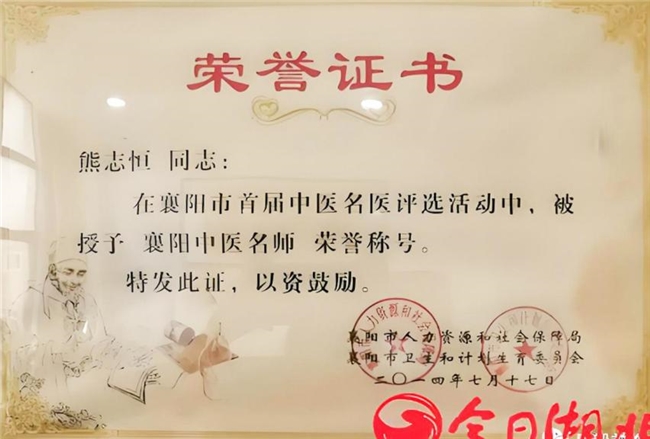 荣誉证书
熊志恒 同志：
在襄阳市首届中医名医评选活动中，被
授予 襄阳中医名师 荣誉称号。
特发此证，以资鼓励。
襄阳市人力资源和社会保障局
襄阳市卫生和计划生育委员会
二〇一四年七月十七日
今日湖北